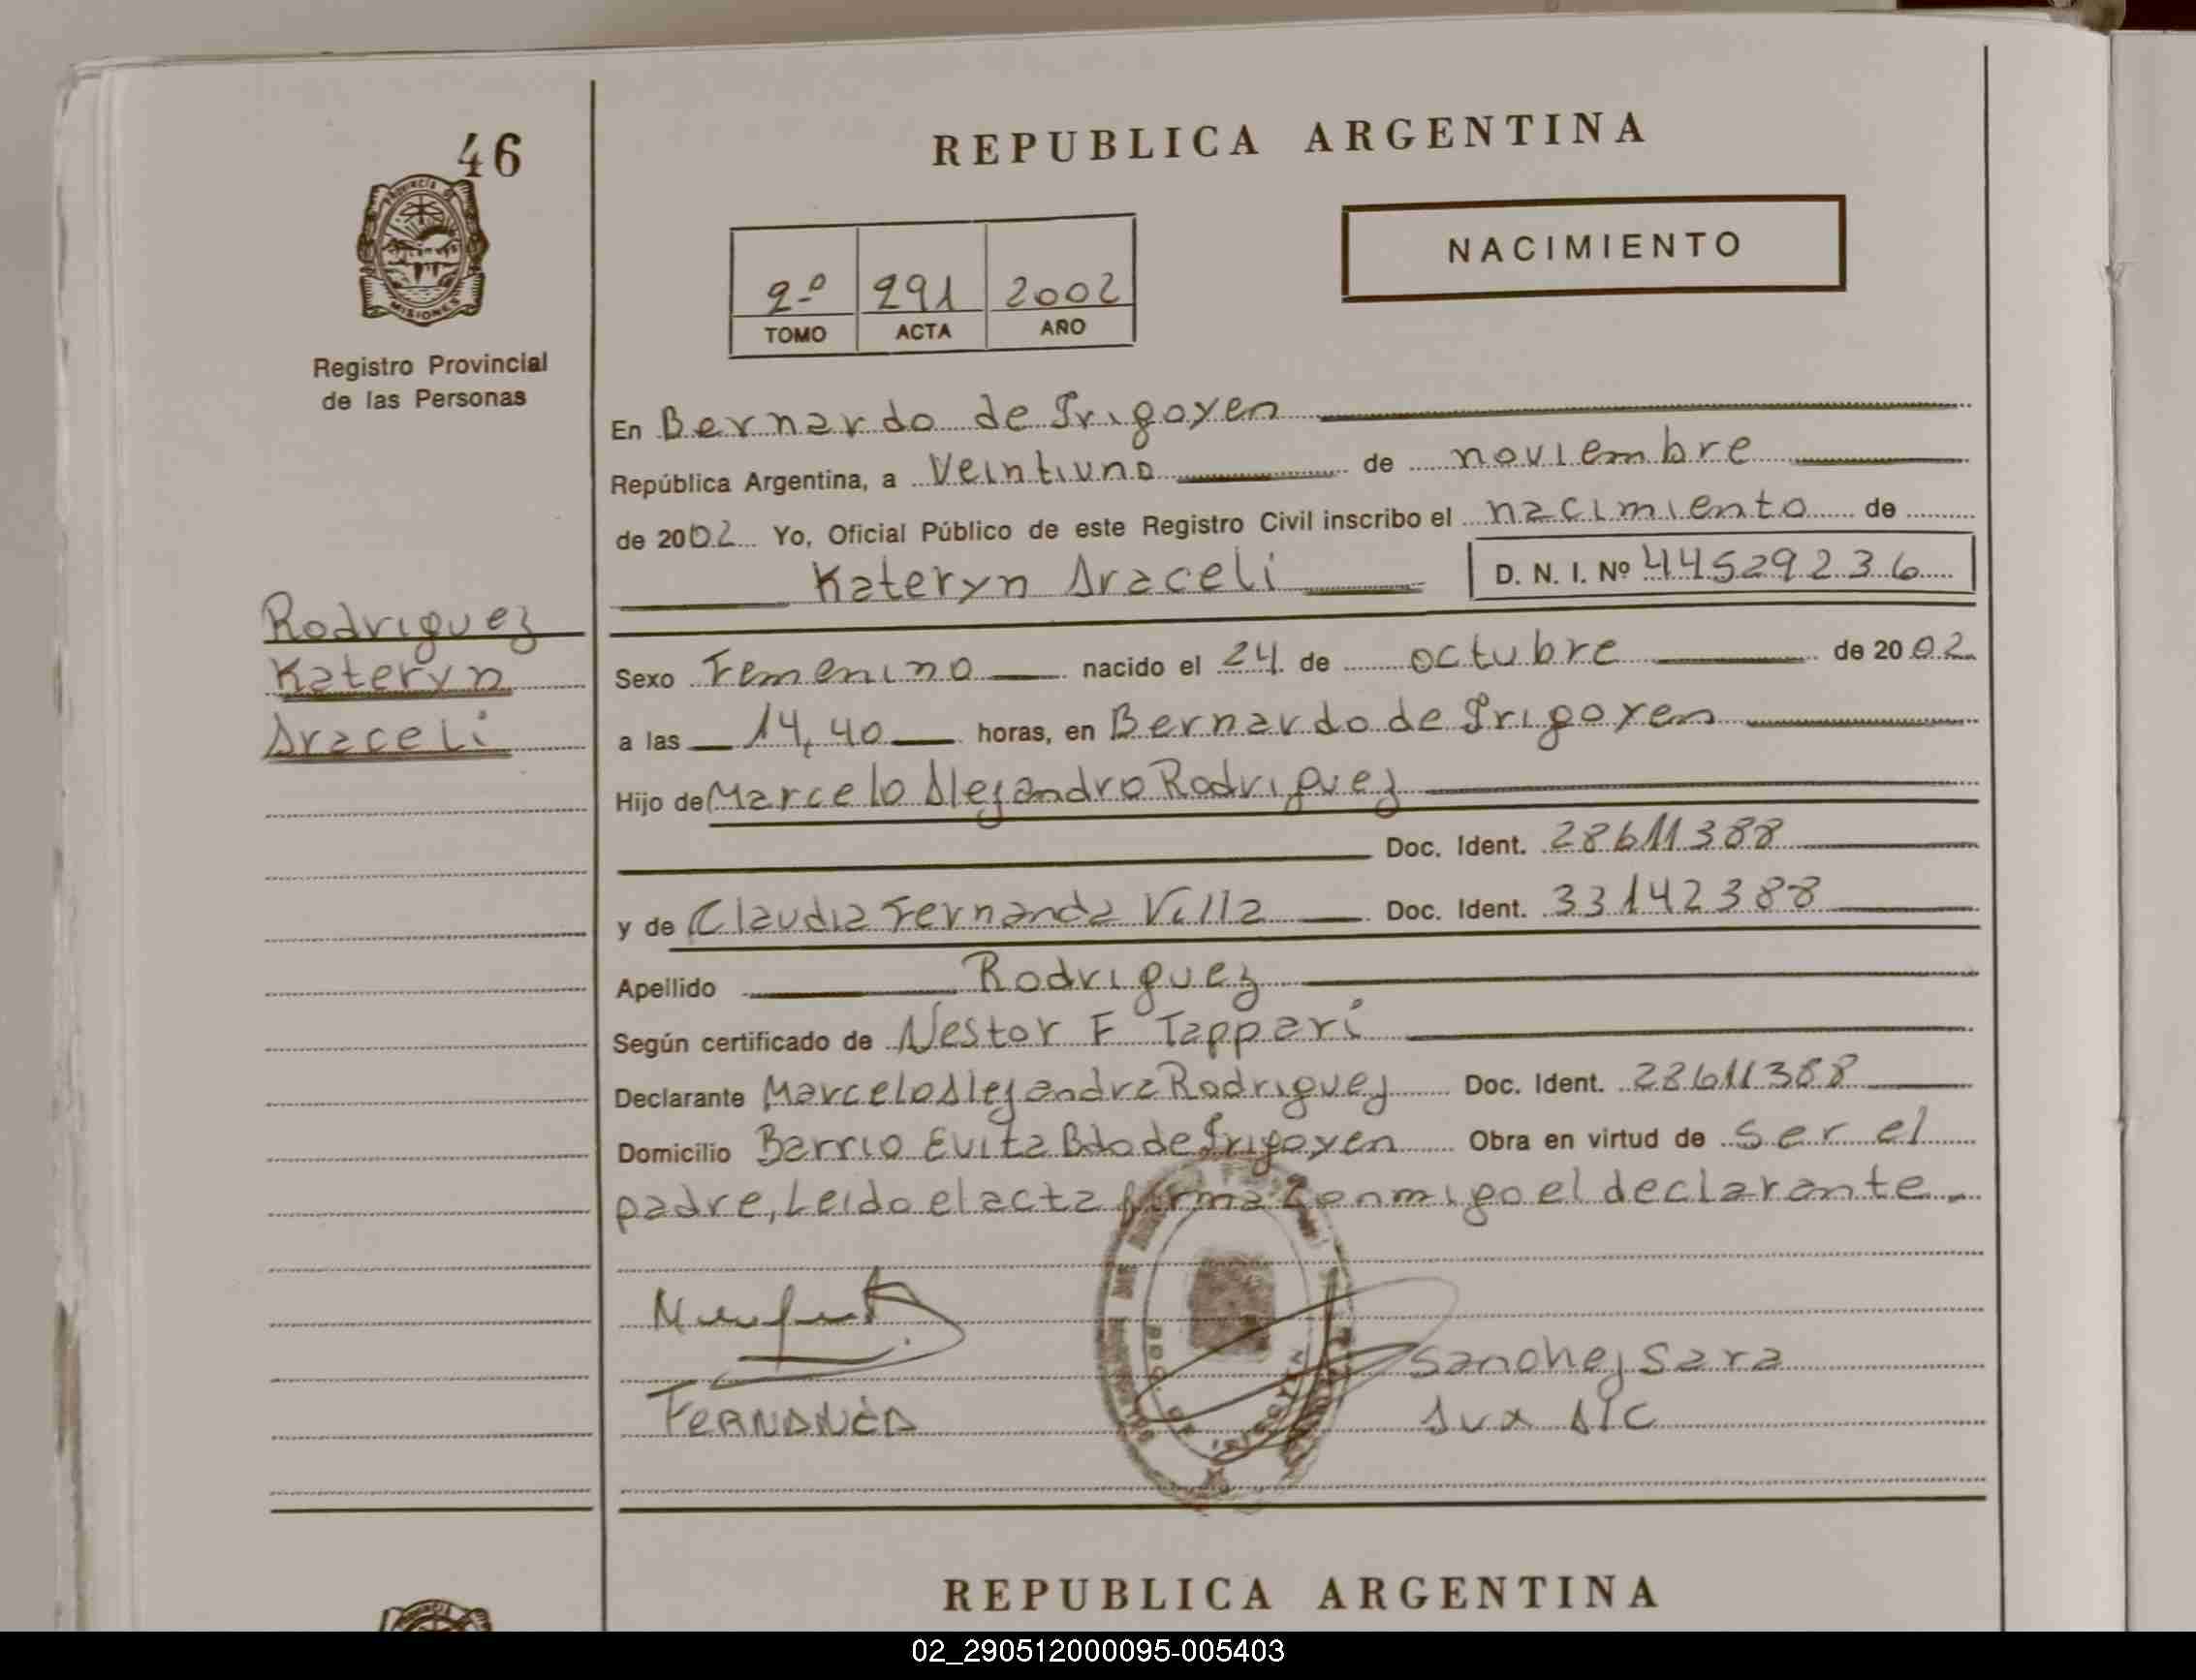 46
REPUBLICA ARGENTINA
PROVINCIA DE
MISIONES
NACIMIENTO
2º 291 2002
TOMO ACTA AÑO
Registro Provincial
de las Personas
En Bernardo de Irigoyen
República Argentina, a Veintiuno de noviembre
de 2002 Yo, Oficial Público de este Registro Civil inscribo el nacimiento de
Kateryn Araceli D. N. I. Nº 44529236
Rodriguez
Kateryn
Araceli
Sexo Femenino nacido el 24 de octubre de 2002
a las 14,40 horas, en Bernardo de Irigoyen
Hijo de Marcelo Alejandro Rodriguez
Doc. Ident. 28611388
y de Claudia Fernanda Villa Doc. Ident. 33142388
Apellido Rodriguez
Según certificado de Nestor F Tappari
Declarante Marcelo Alejandra Rodriguez Doc. Ident. 28611388
Domicilio Barrio Evita Bdo de Irigoyen Obra en virtud de ser el
padre, Leido el acta firma Conmigo el declarante.
Sanchez Sara
Aux A/C
REPUBLICA ARGENTINA
02_290512000095-005403